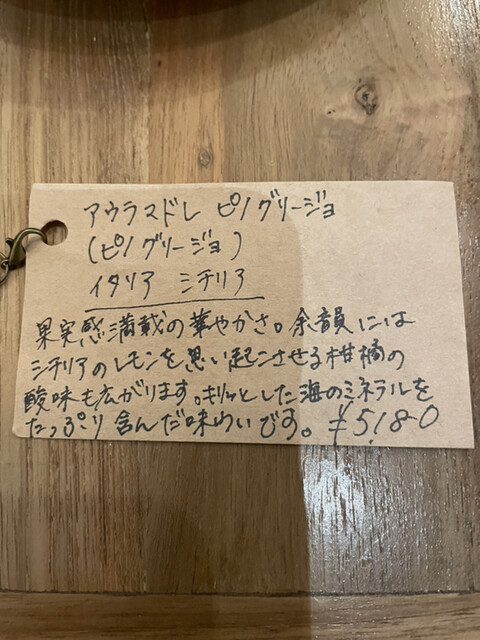 アウラマドレ ピノグリージョ
(ピノグリージョ)
イタリア シチリア
果実感満載の華やかさ。余韻には
シチリアのレモンを思い起こさせる柑橘の
酸味も広がります。キリッとした海のミネラルを
たっぷり含んだ味わいです。¥5,180